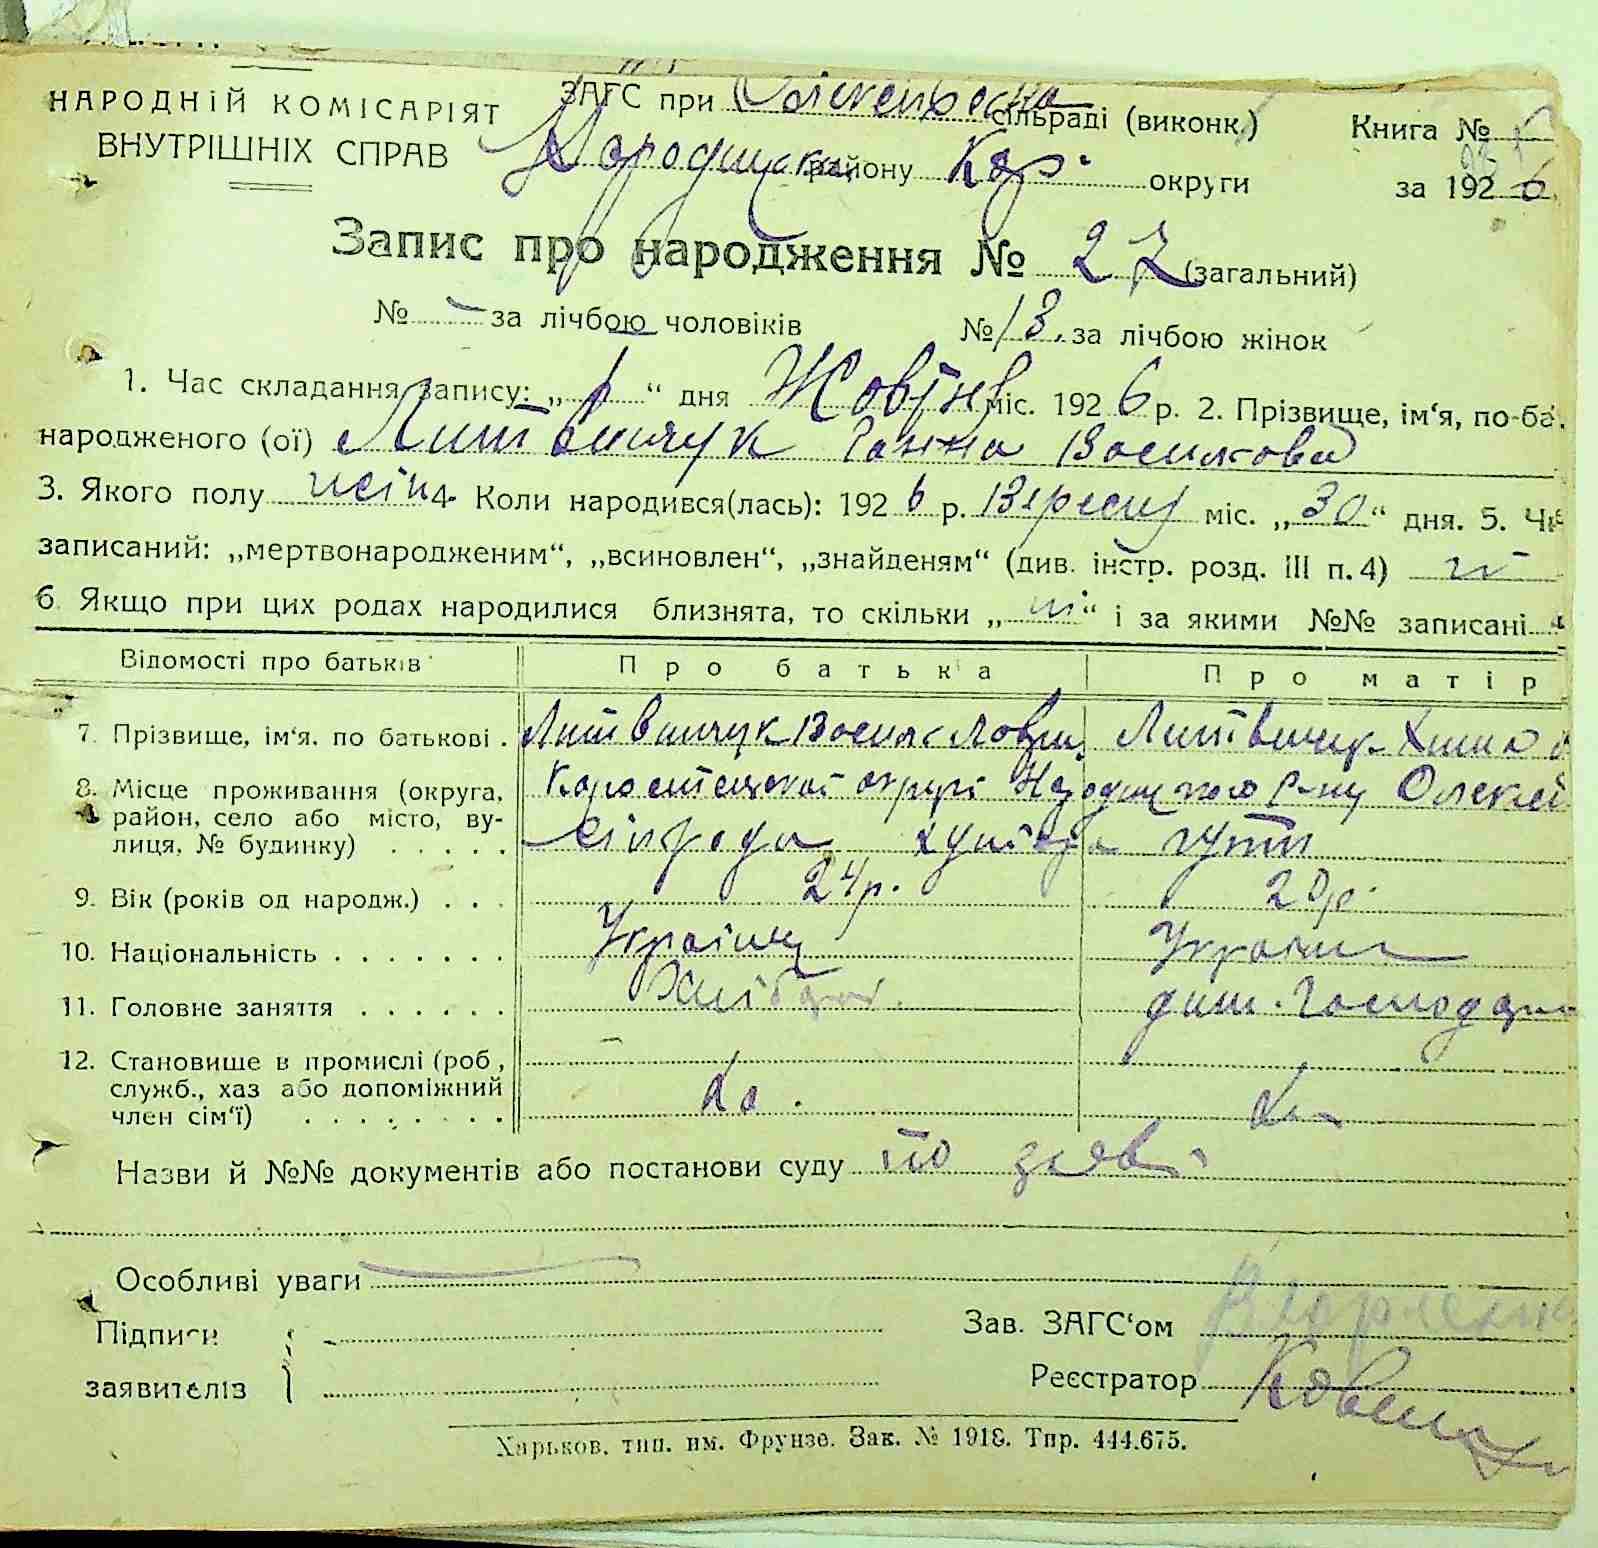 НАРОДНІЙ КОМІСАРІЯТ
ВНУТРІШНІХ СПРАВ
ЗАГС при сільраді (виконк.)
Народицьк. району Кор. округи
Книга №
за 1926
Запис про народження № 27 (загальний)
№ — за лічбою чоловіків № 13. за лічбою жінок
1. Час складання запису: „ “ дня Жовтня міс. 1926 р. 2. Прізвище, ім‘я, по-ба.
народженого (ої) Литвинчук Ганна Василова
3. Якого полу жін 4. Коли народився(лась): 1926 р. Вересня міс. „30“ дня. 5. Чи
записаний: „мертвонародженим“, „всиновлен“, „знайденям“ (див. інстр. розд. III п. 4) ні
6. Якщо при цих родах народилися близнята, то скільки „ні“ і за якими №№ записані
Відомості про батьків Про батька Про матір
7. Прізвище, ім‘я, по батькові. Литвинчук Василь Литвинчук
8. Місце проживання (округа, Коростецької округи Народицького р-ну Олексі
район, село або місто, ву- сільрада хутіра гути
лиця, № будинку) . . . . .
9. Вік (років од народж.) . . . 24р. 20р.
10. Національність . . . . . . . Українец Україн
11. Головне заняття . . . . . . Хліборов. дом. господарка
12. Становище в промислі (роб.,
служб., хаз або допоміжний
член сім‘ї) . . . . . . . .
Назви й №№ документів або постанови суду по заяві
Особливі уваги
Підписи
заявителів
Зав. ЗАГС‘ом
Реєстратор
Харьков. тип. им. Фрунзе. Зак. № 1918. Тир. 444.675.